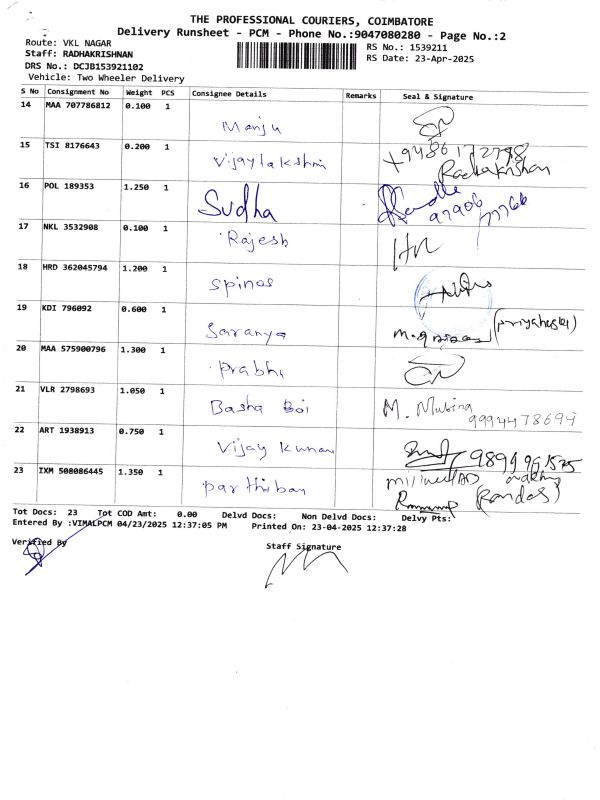 THE PROFESSIONAL COURIERS, COIMBATORE
Delivery Runsheet - PCM - Phone No.:9047080280 - Page No.:2
Route: VKL NAGAR
RS No.: 1539211
Staff: RADHAKRISHNAN
RS Date: 23-Apr-2025
DRS No.: DCJB153921102
Vehicle: Two Wheeler Delivery
S No Consignment No Weight PCS Consignee Details Remarks Seal & Signature
14 MAA 707786812 0.100 1
Manju
15 TSI 8176643 0.200 1
Vijaylakshmi
Radhakrishan
16 POL 189353 1.250 1
Sudha
17 NKL 3532908 0.100 1
Rajesh
18 HRD 362045794 1.200 1
Spinos
19 KDI 796092 0.600 1
Saranya
20 MAA 575900796 1.300 1
Prabhu
21 VLR 2798693 1.050 1
Basha Boi M. Mubina
9994478699
22 ART 1938913 0.750 1
Vijay Kumar
23 IXM 508086445 1.350 1
Parthiban
Tot Docs: 23 Tot COD Amt: 0.00 Delvd Docs: Non Delvd Docs: Delvy Pts:
Entered By :VIMALPCM 04/23/2025 12:37:05 PM Printed On: 23-04-2025 12:37:28
Verified By
Staff Signature